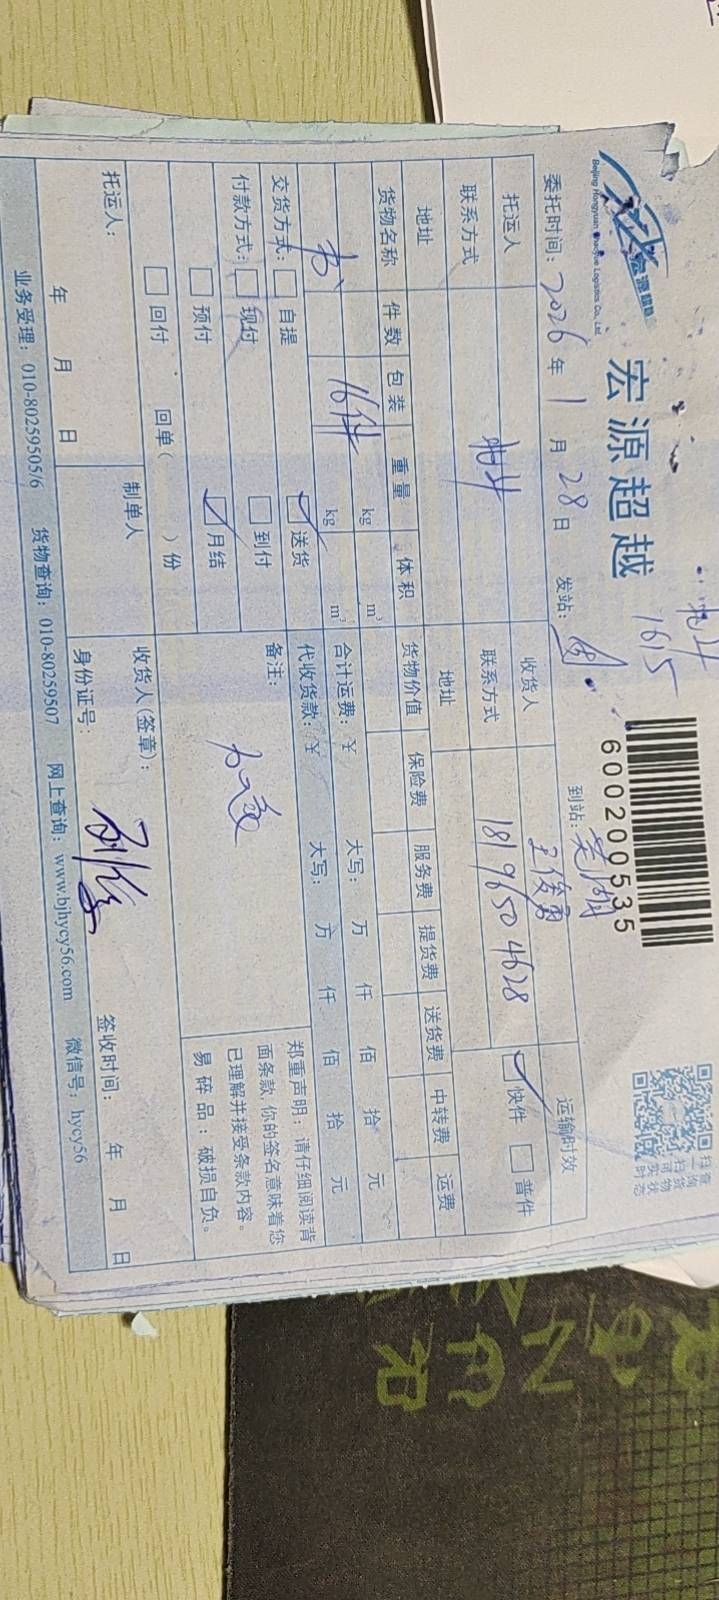 宏源超越
Beijing Hongyuan Chaoyue Logistics Co., Ltd.
1615
600200535
扫一扫
查询货物实时状态
委托时间: 2026 年 1 月 28 日 发站: 到站: 芜湖
托运人 收货人 王俊勇 运输时效
联系方式 联系方式 18196504628 快件 普件
地址 地址
货物名称 件数 包装 重量 体积 货物价值 保险费 服务费 提货费 送货费 中转费 运费
书 16件 kg m³ 合计运费: ¥ 大写: 万 仟 佰 拾 元
kg m³ 代收货款: ¥ 大写: 万 仟 佰 拾 元
交货方式: 自提 送货 备注:
付款方式: 现付 到付
预付 月结
回付 回单( )份
郑重声明: 请仔细阅读背
面条款, 你的签名意味着您
已理解并接受条款内容。
易碎品: 破损自负。
托运人: 制单人 收货人(签章):
身份证号:
年 月 日 签收时间: 年 月 日
业务受理: 010-80259505/6 货物查询: 010-80259507 网上查询: www.bjhycy56.com 微信号: hycy56